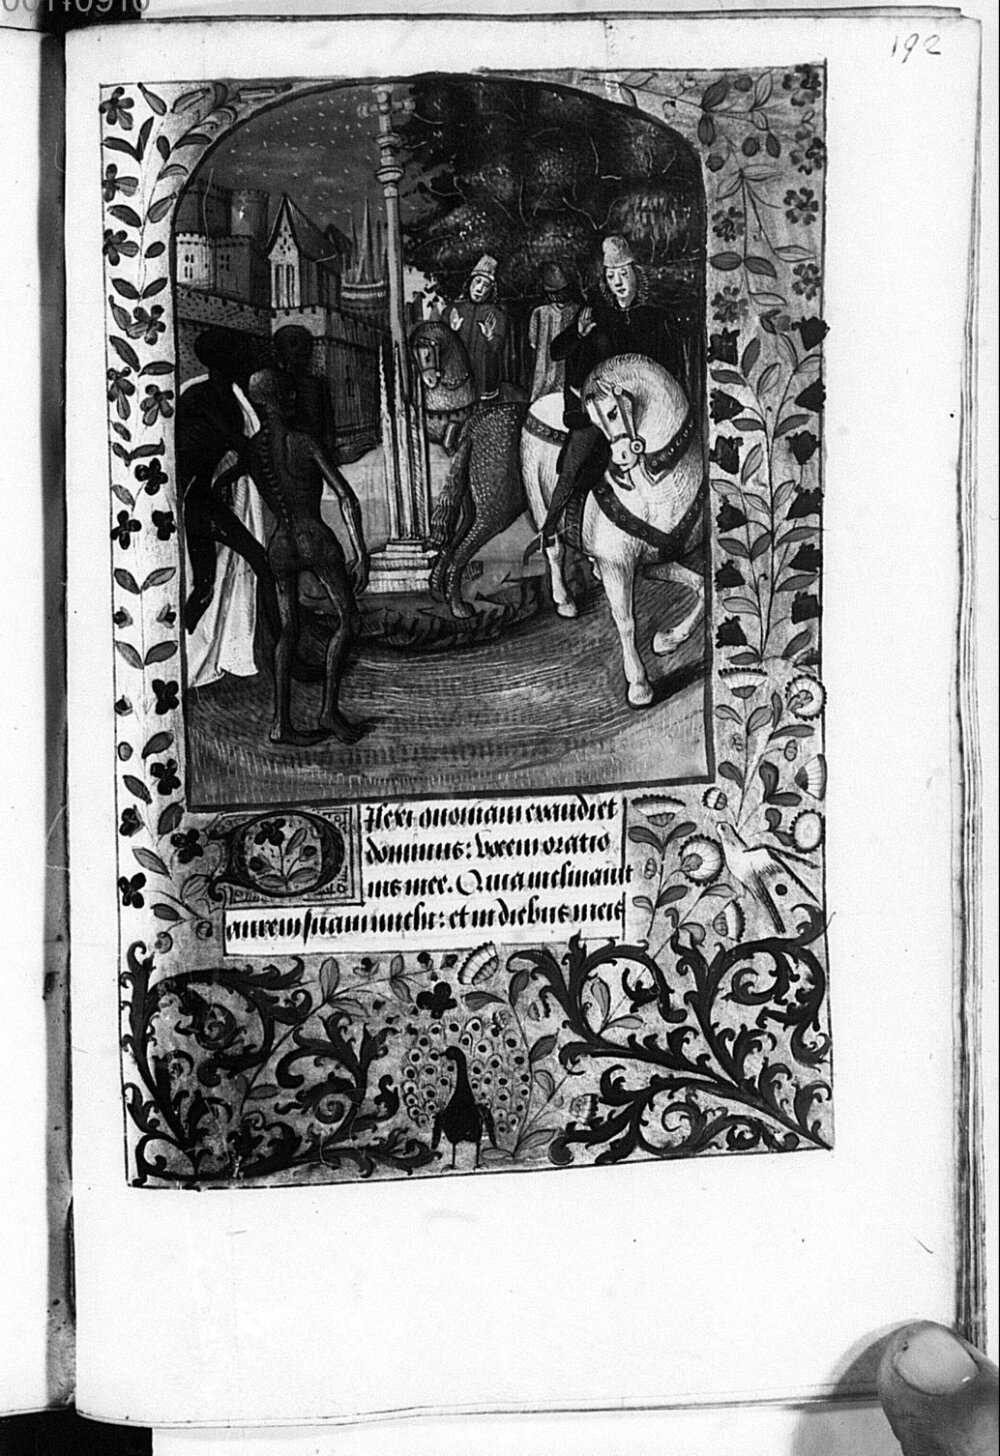 192
Dilexi quoniam exaudiet
dominus: vocem oratio
nis mee. Quia inclinavit
aurem suam michi: et in diebus meis